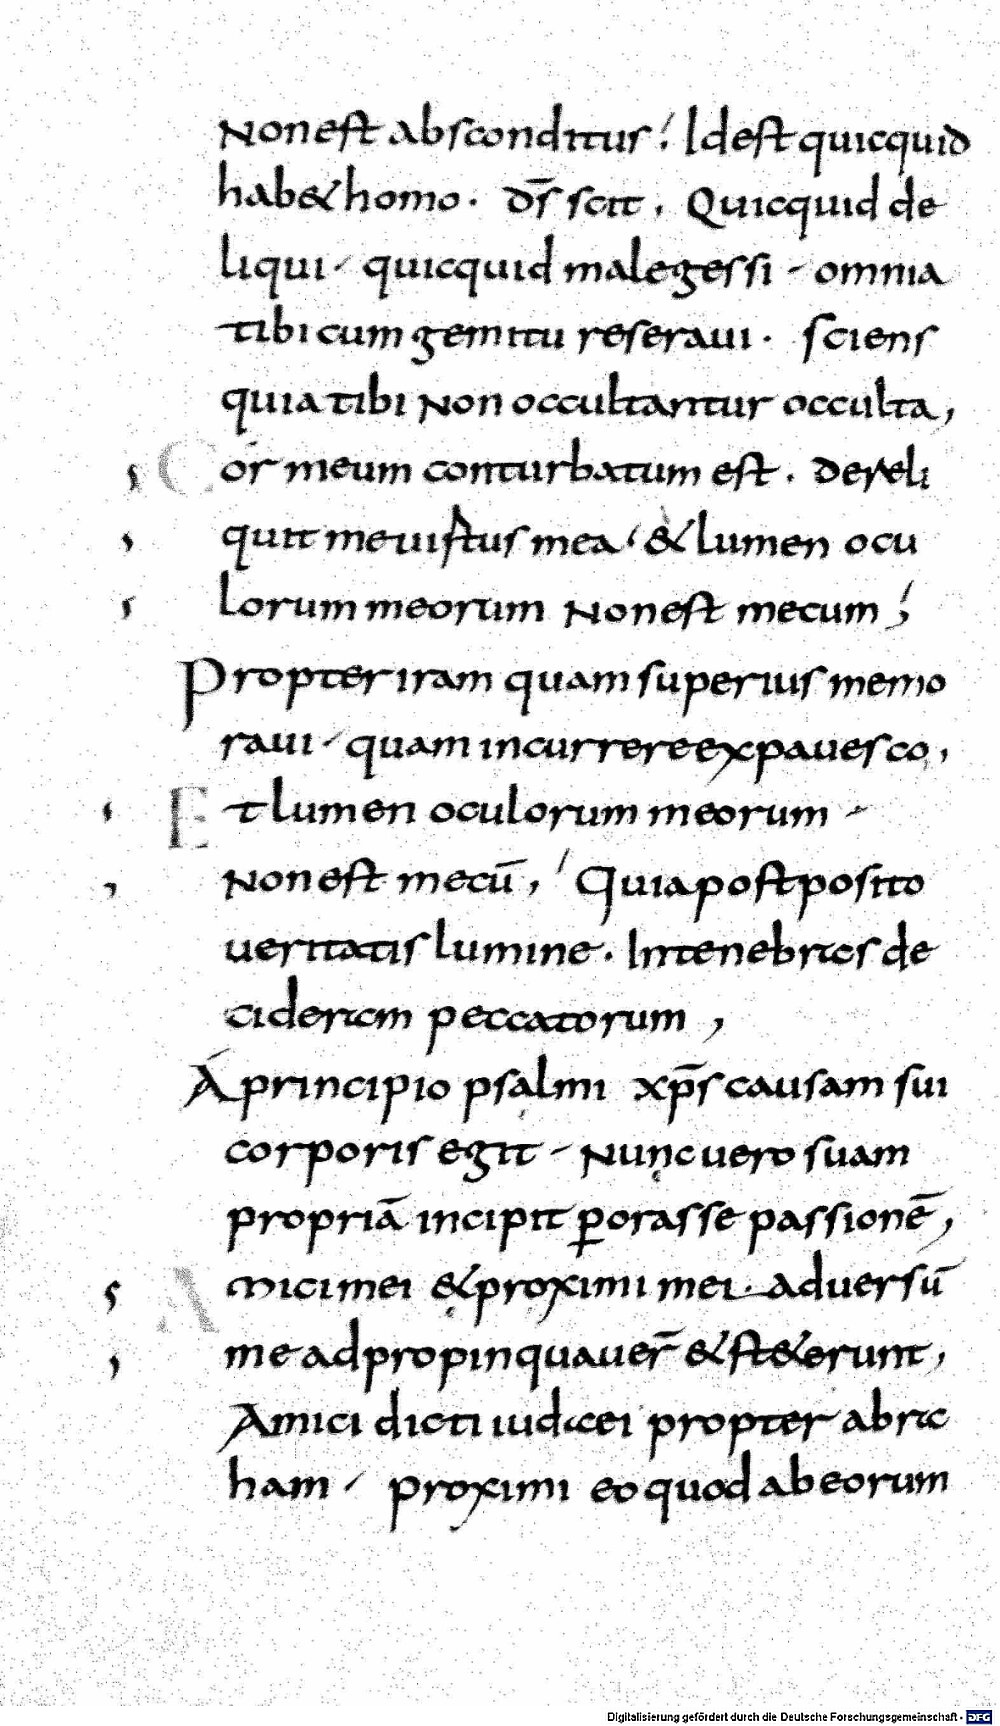 Non est absconditus; Idest quicquid
habet homo. ds̄ scit, Quicquid de
liqui, quicquid male gessi, omnia
tibi cum gemitu reseraui. Sciens
quia tibi non occultantur occulta,
Cor meum conturbatum est. Dereli
quit me uirtus mea, & lumen ocu
lorum meorum non est mecum;
Propter iram quam superius memo
raui, quam incurrere expauesco,
Et lumen oculorum meorum,
Non est mecū, Quia postposito
ueritatis lumine. In tenebras de
cideram peccatorum,
A principio psalmi xp̄s causam sui
corporis egit, Nunc uero suam
propriā incipit ꝑorasse passionē,
Amici mei & proximi mei. aduersū
me adpropinquauer̄ & steterunt,
Amici dicti iudaei propter abra
ham, proximi eo quod ab eorum
Digitalisierung gefördert durch die Deutsche Forschungsgemeinschaft - DFG